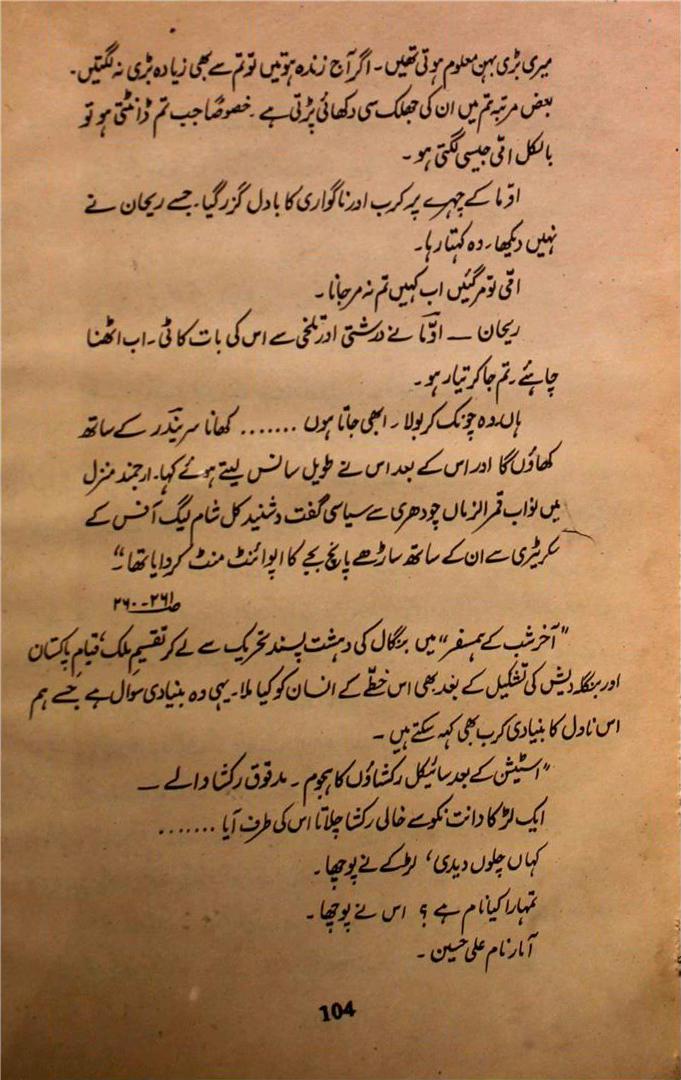 میری بڑی بہن معلوم ہوتی تھیں۔ اگر آج زندہ ہوتیں تو تم سے بھی زیادہ بڑی نہ لگتیں۔
بعض مرتبہ تم میں ان کی جھلک سی دکھائی پڑتی ہے۔ خصوصًا جب تم ڈانٹتی ہو تو
بالکل امّی جیسی لگتی ہو۔
اوما کے چہرے پر کرب اور ناگواری کا بادل گزر گیا۔ جسے ریحان نے
نہیں دیکھا۔ وہ کہتا رہا۔
امّی تو مر گئیں اب کہیں تم نہ مر جانا۔
ریحان ــ اوما نے درشتی اور تلخی سے اس کی بات کاٹی۔ اب اٹھنا
چاہئے۔ تم جا کر تیار ہو۔
ہاں، وہ چونک کر بولا۔ ابھی جاتا ہوں ....... کھانا سریندر کے ساتھ
کھاؤں گا اور اس کے بعد اس نے طویل سانس لیتے ہوئے کہا۔ ارجمند منزل
میں نواب قمر الزماں چودھری سے سیاسی گفت و شنید کل شام لیگ آفس کے
سکریٹری سے ان کے ساتھ ساڑھے پانچ بجے کا اپوائنٹ منٹ کر دایا تھا۔"
صـ ۲۶۱-۲۶۰
"آخر شب کے ہمسفر" میں بنگال کی دہشت پسند تحریک سے لے کر تقسیمِ ملک، قیامِ پاکستان
اور بنگلہ دیش کی تشکیل کے بعد بھی اس خطّے کے انسان کو کیا ملا۔ یہی وہ بنیادی سوال ہے جسے ہم
اس ناول کا بنیادی کرب بھی کہہ سکتے ہیں۔
"اسٹیشن کے بعد سائیکل رکشاؤں کا ہجوم۔ مدقوق رکشا والے ــ
ایک لڑکا دانت نکوسے خالی رکشا چلاتا اس کی طرف آیا .......
کہاں چلوں دیدی، لڑکے نے پوچھا۔
تمہارا کیا نام ہے؟ اس نے پوچھا۔
آمار نام علی حسین۔
104